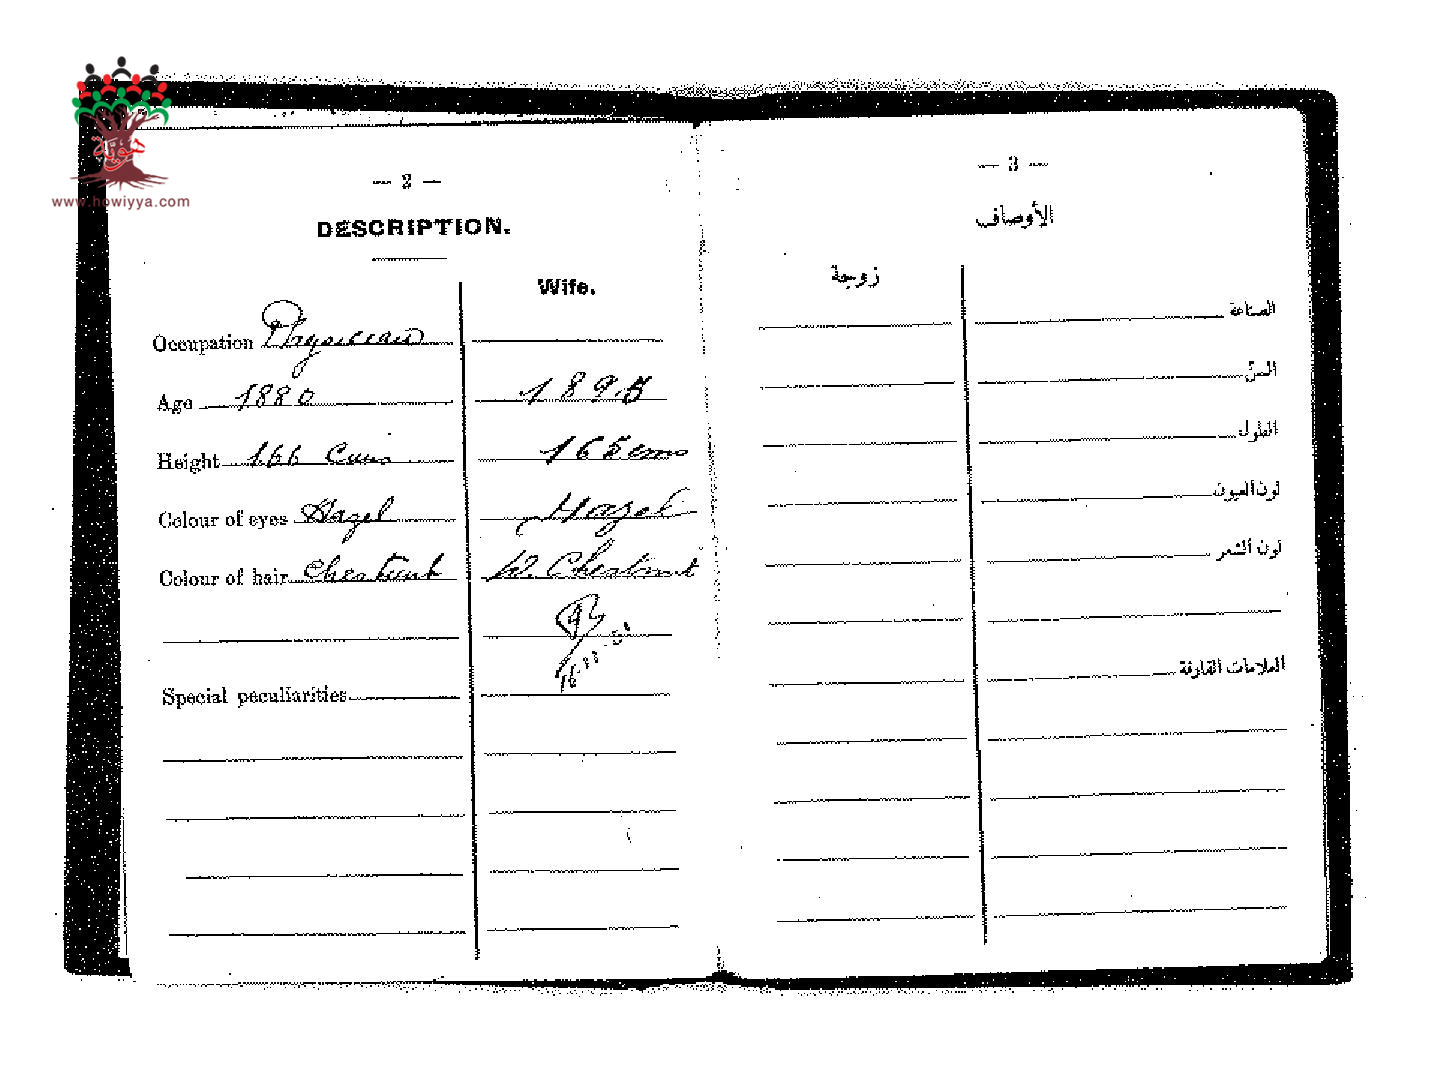 هوية
www.howiyya.com
— 2 —
DESCRIPTION.
Wife.
Occupation Physician
Age 1880 1895
Height 166 Cms 165 cms
Colour of eyes Hazel Hazel
Colour of hair Chestnut W. Chestnut
Special peculiarities
— 3 —
الأوصاف
زوجة
الصناعة
السنّ
الطول
لون العيون
لون الشعر
العلامات الفارقة